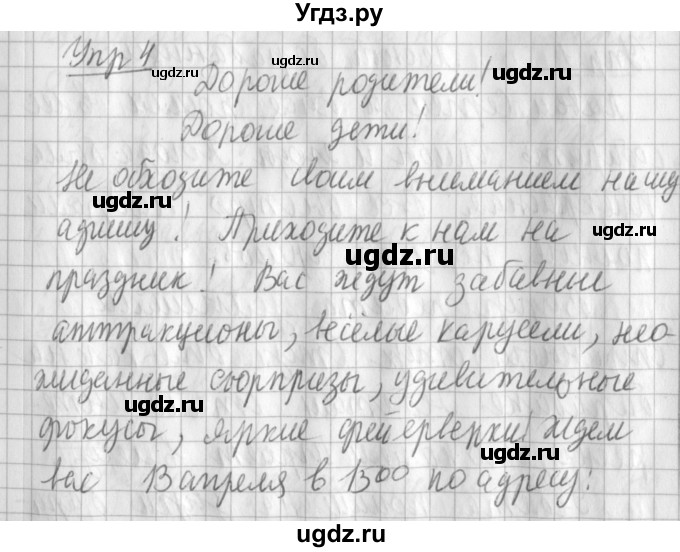 Угдз.ру
Упр 4
ugdz.ru
Дорогие родители!
ugdz.ru
Дорогие дети!
Не обходите своим вниманием нашу
ugdz.ru
афишу! Приходите к нам на
ugdz.ru
ugdz.ru
праздник! Вас ждут забавные
аттракционы, весёлые карусели, нео-
ugdz.ru
жиданные сюрпризы, удивительные
ugdz.ru
ugdz.ru
фокусы, яркие фейерверки! Ждем
ugdz.ru
вас 13 апреля в 1300 по адресу:
ugdz.ru